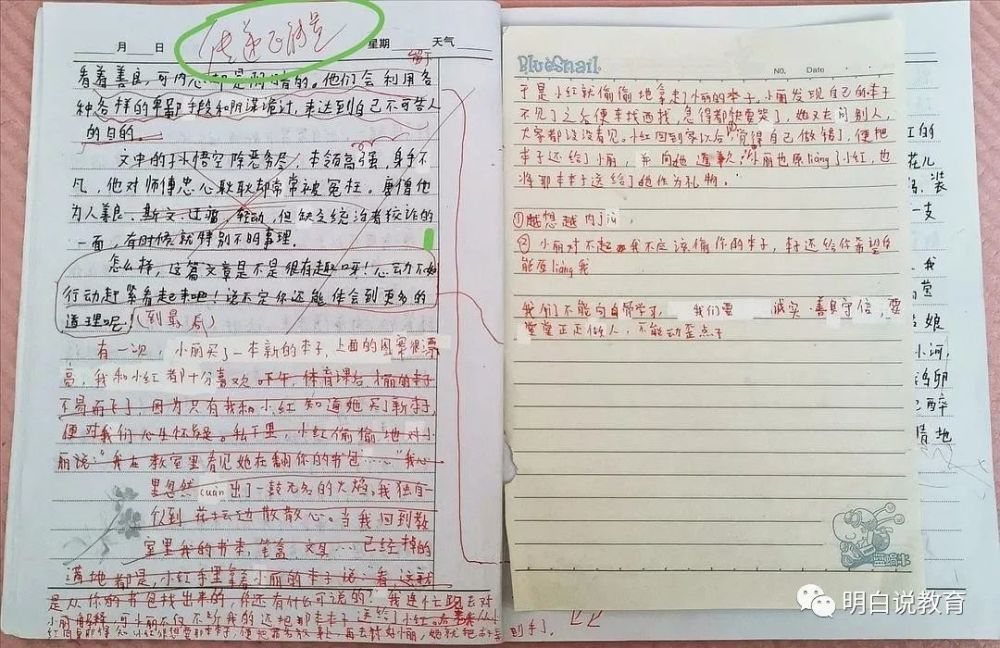 月 日 星期 天气
传递正能量
看着善良，可内心却是阴暗的。他们会利用各
种各样的卑鄙手段和阴谋诡计，来达到自己不可告人
的目的。
文中的孙悟空除恶务尽，本领高强，身手不
凡，他对师傅忠心耿耿却常常被冤枉。唐僧他
为人善良、斯文、但缺乏统治者狡诈的
一面，有时候就特别不明事理。
怎么样，这篇文章是不是很有趣呀！心动不如
行动赶紧看起来吧！说不定你还能体会到更多的
道理呢。（到最后）
有一次，小丽买了一本新的本子，上面的图案很漂
亮，我和小红都十分喜欢。下午，体育课后，小丽的本子
不易而飞了，因为只有我和小红知道她买了新本子，
便对我们心生怀疑。私下里，小红偷偷地对小
丽说：“我在教室里看见她在翻你的书包……”我心
里忽然cuàn出了一鼓无名的火焰。我独自一
人到花坛边散散心。当我回到教
室里我的书本，笔盒，文具……已经掉的
满地都是，小红手里拿着小丽的本子说：“看，这就
是从你的书包找出来的，你还有什么可说的？”我连忙跑去对
小丽解释，可小丽不仅不听我的还把那本本子送给了小红。
BlueSnail
NO. Date
于是小红就偷偷地拿走了小丽的本子，小丽发现自己的本子
不见了之后便东找西找，急得都快要哭了，她又去问别人，
大家都说没看见。小红回到家以后，觉得自己做错了，便把
本子还给了小丽，并向她道歉，小丽也原liàng了小红，也
将那本本子送给了她作为礼物。
①越想越内jiù
②小丽对不起我不应该偷你的本子，本子还给你希望你
能原liàng我
我们不能向自私学习，我们要诚实、善良守信，要
堂堂正正做人，不能动歪点子
明白说教育